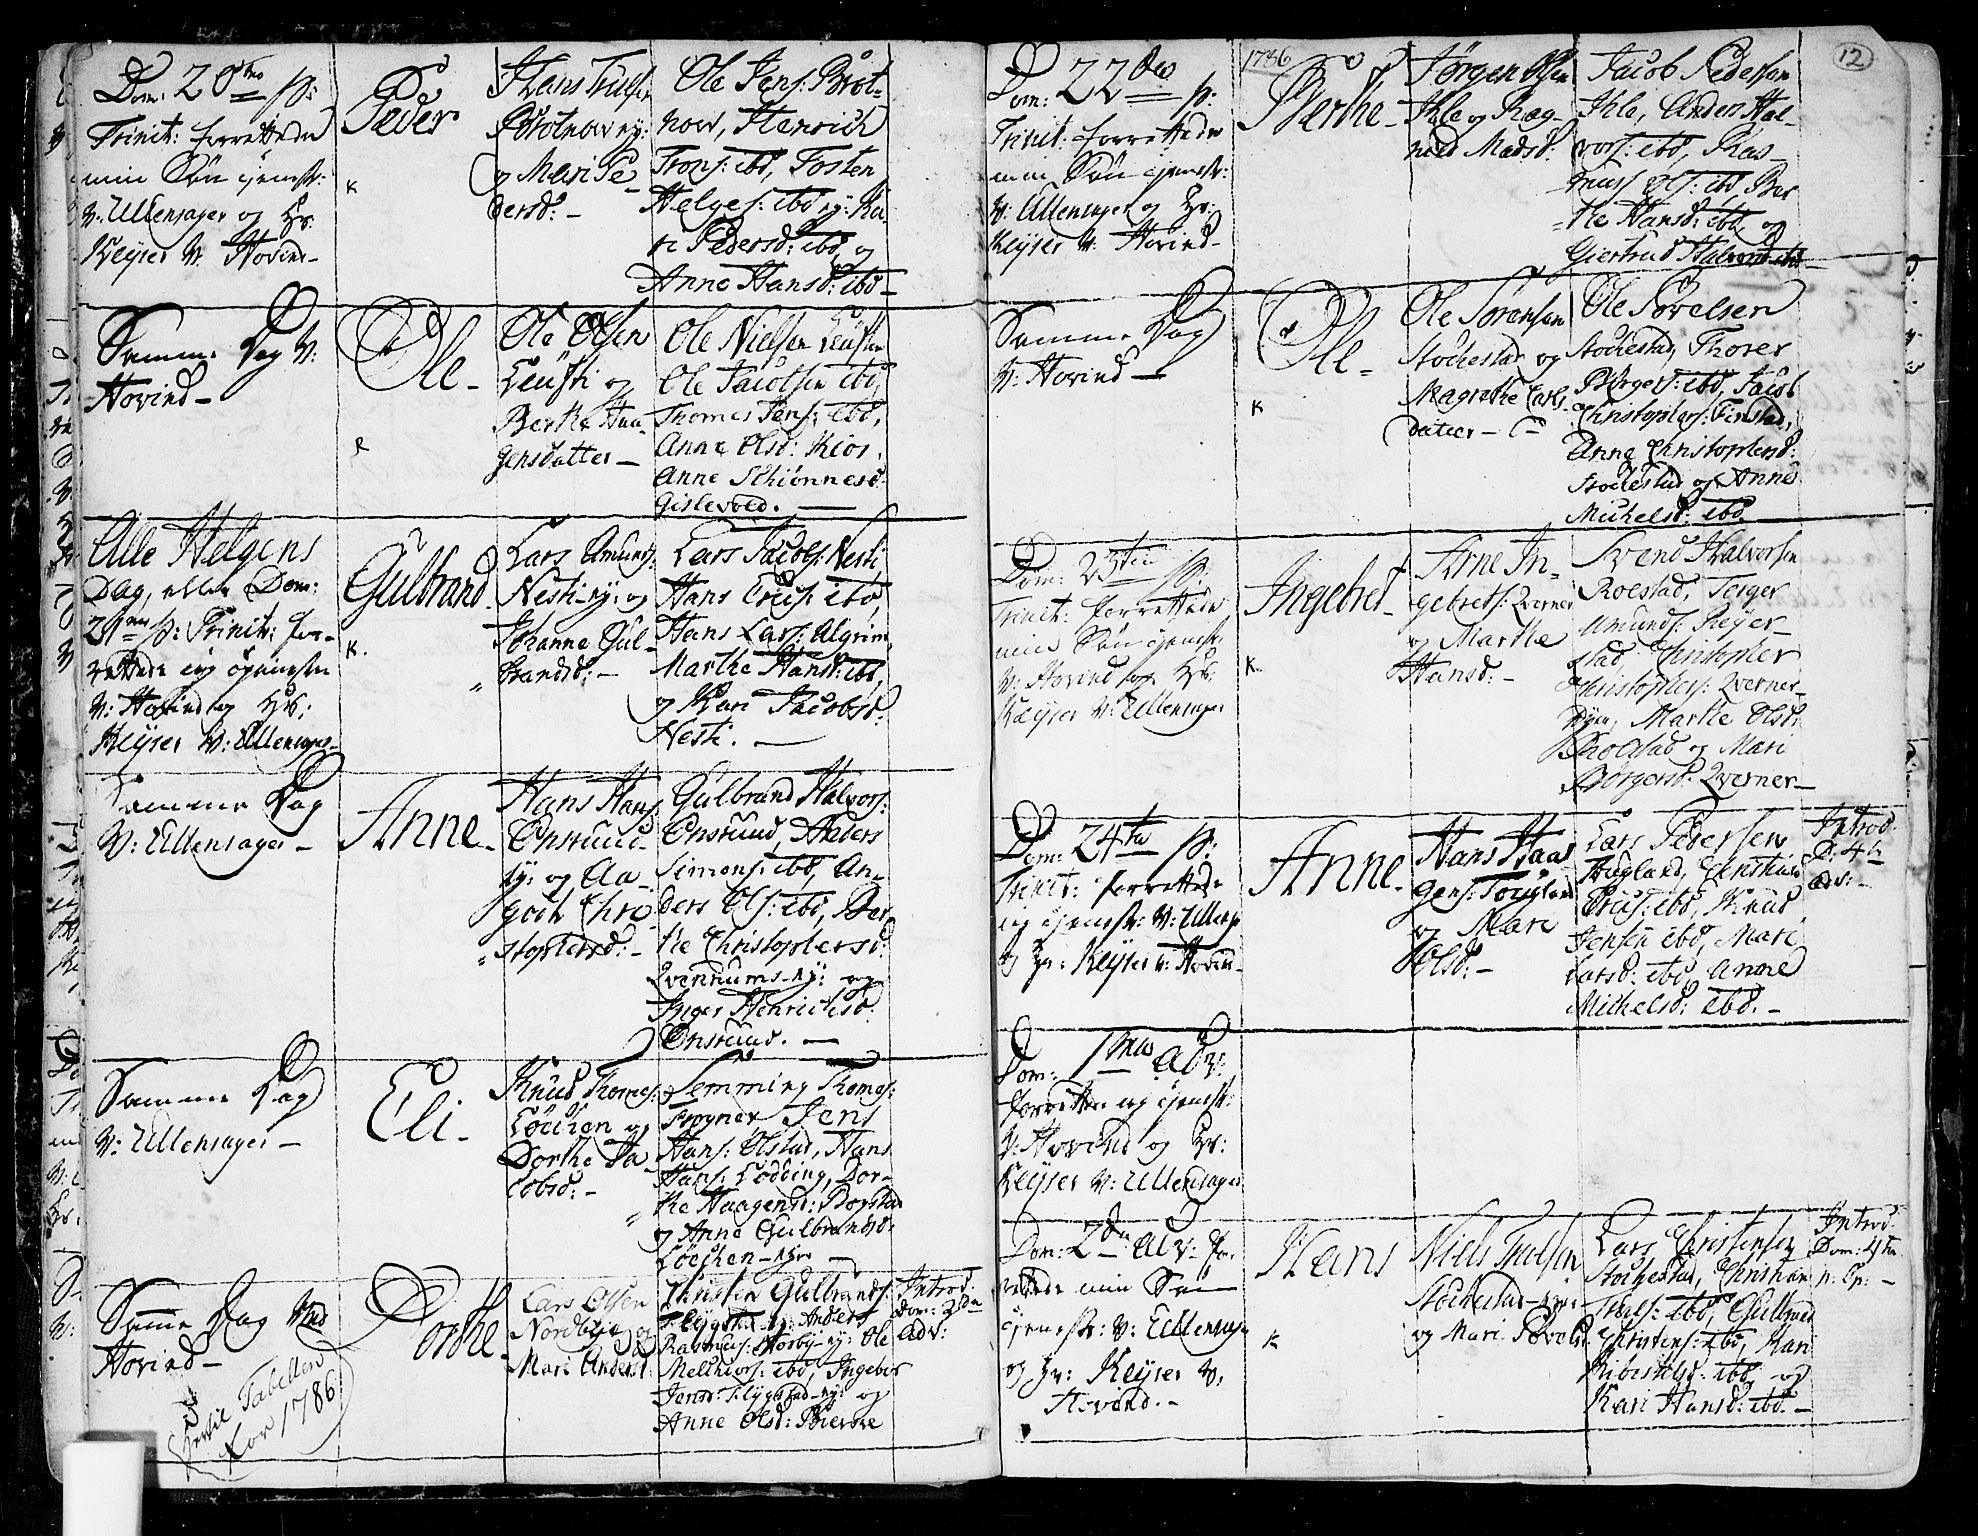 Dom: 20de p:
Trinit: forrettede
min Søn tjenest:
V: Ullensager og Hr:
Keyser V: Hovind
Peder
K
Hans Truls:
og Mari Pe
dersd: -
Ole Jens:
now, Henrich
Trons: ibd, Tosten
Helges: ibd ny: Ka
ri Pedersd: ibd, og
Anne Hansd: ibd -
Samme Dag V:
Hovind -
Ole -
Ole Olsen
og
Berthe Haa
gensdatter -
Ole Nielsen
Ole Jacobsen ibd,
Thomes Jens: ibd,
Anne Olsd: Kios,
Anne Schiønnesd
Gislevold. -
Alle Helgens
Dag, eller Dom:
21de p: Trinit: for-
rettede jeg tjenesten
V: Hovind og Hr:
Keyser V: Ullensager -
Gulbrand
K.
Lars Amunds:
Nesti-ny: og
Johanne Gul-
brandsd: -
Lars Jacobs: Nesti
Hans Truls: ibd,
Hans Lars: Algrim,
Marthe Hansd: ibd,
og Kari Jacobsd:
Nesti. -
Samme Dag
V: Ullensager -
Anne -
Hans Hans:
Onsrund
ny: og Aa-
goth Chri
stophersd: -
Gulbrand Halvors:
Onsrund,
Simons: ibd, An-
ders Ols: ibd, Ber-
the Christophersd:
Qvernums-ny: og
Inger Henrichsd:
Onsrund. -
Samme Dag
V: Ullensager -
Eli -
Knud Thomes:
Løcchen og
Dorthe Ja
cobsd: -
Lemming Thomes:
Jens
Hans: Olstad, Hans
Hans: Lødding, Dor-
the Haagensd: Bogstad
og Anne Gulbrandsd:
Løcchen - nye -
Samme Dag Ved
Hovind -
Dorthe -
Lars Olsen
Nordbye og
Mari Andersd:
Christen Gulbrands:
Flygstad-ny: Anders
Rasmus: Norby-ny: Ole
Melchiors: ibd, Ingebor
Jensd: Flygstad-ny: og
Anne Olsd:
Introd:
Dom: 3die
Adv:
Tabellen
for 1786.
12
1786
Dom: 22de p:
Trinit: forrettede
min Søn tjenest:
V: Ullensager og Hr:
Keyser V: Hovind -
Berthe -
Jørgen Olsen
Ihle og Rag-
nild Madsd:
Jacob Pedersen
Ihle, Anders Hal-
vors: ibd, Ras-
mus Ols: ibd Ber
the Hansd: ibd, og
Giertrud Halvorsd ibd -
Samme Dag
V: Hovind -
K
Ole -
Ole Sørensen
Stochestad og
Magrethe Carls
datter -
Ole Povelsen
Stochestad, Thorer
Børgers: ibd, Jacob
Christophers: Finstad,
Anne Christophersd:
Stochestad og Anne
Michelsd: ibd.
Dom: 23de p:
Trinit: forrettede
min Søn tjenest:
V: Hovind og Hr:
Keyser V: Ullensager
K.
Ingebret -
Arne In-
gebrets: Qverner
og Marthe
Hansd: -
Svend Halvorsen
Roestad, Terger
Amunds: Reyer-
stad, Christopher
Christophers: Qverner-
Marthe Olsd:
og Mari
Børgersd: Qverner -
Dom: 24de p:
Trinit: forrettede
jeg tjenest: V: Ullens:
og Hr: Keyser V: Hovin -
Anne -
Hans Haa
gens: Hougland
og Mari
Olsd: -
Lars Pedersen
Hougland, Christian
Truls: ibd, Knud
Jensen ibd, Mari
Larsd: ibd, Anne
Michelsd: ibd. -
Introd:
D: 4de
Adv: -
Dom: 1ma Adv:
forrettede jeg tjenest:
V: Hovind og Hr:
Keyser V: Ullensager
Dom: 2da Adv: for
rettede min Søn
tjenest: V: Ullensag
og Hr: Keyser V.
Hovind. -
K
Hans
Niels Trulsen
Stochestad-nye-
og Mari Povelsd
Lars Christensen
Stochestad, Christian
Truls: ibd, Gulbrand
Christens: ibd, Kari
ibd, og
Kari Hansd: ibd. -
Introd:
Dom: 4de
p: Ep: -